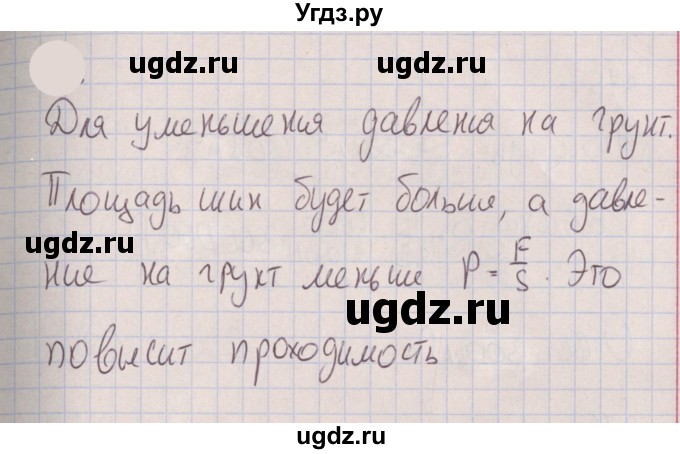 Угдз.ру
ugdz.ru ugdz.ru
Для уменьшения давления на грунт.
Площадь шин будет больше, а давле-
ugdz.ru
ние на грунт меньше P = F/S. Это
ugdz.ru
повысит проходимость
ugdz.ru
ugdz.ru